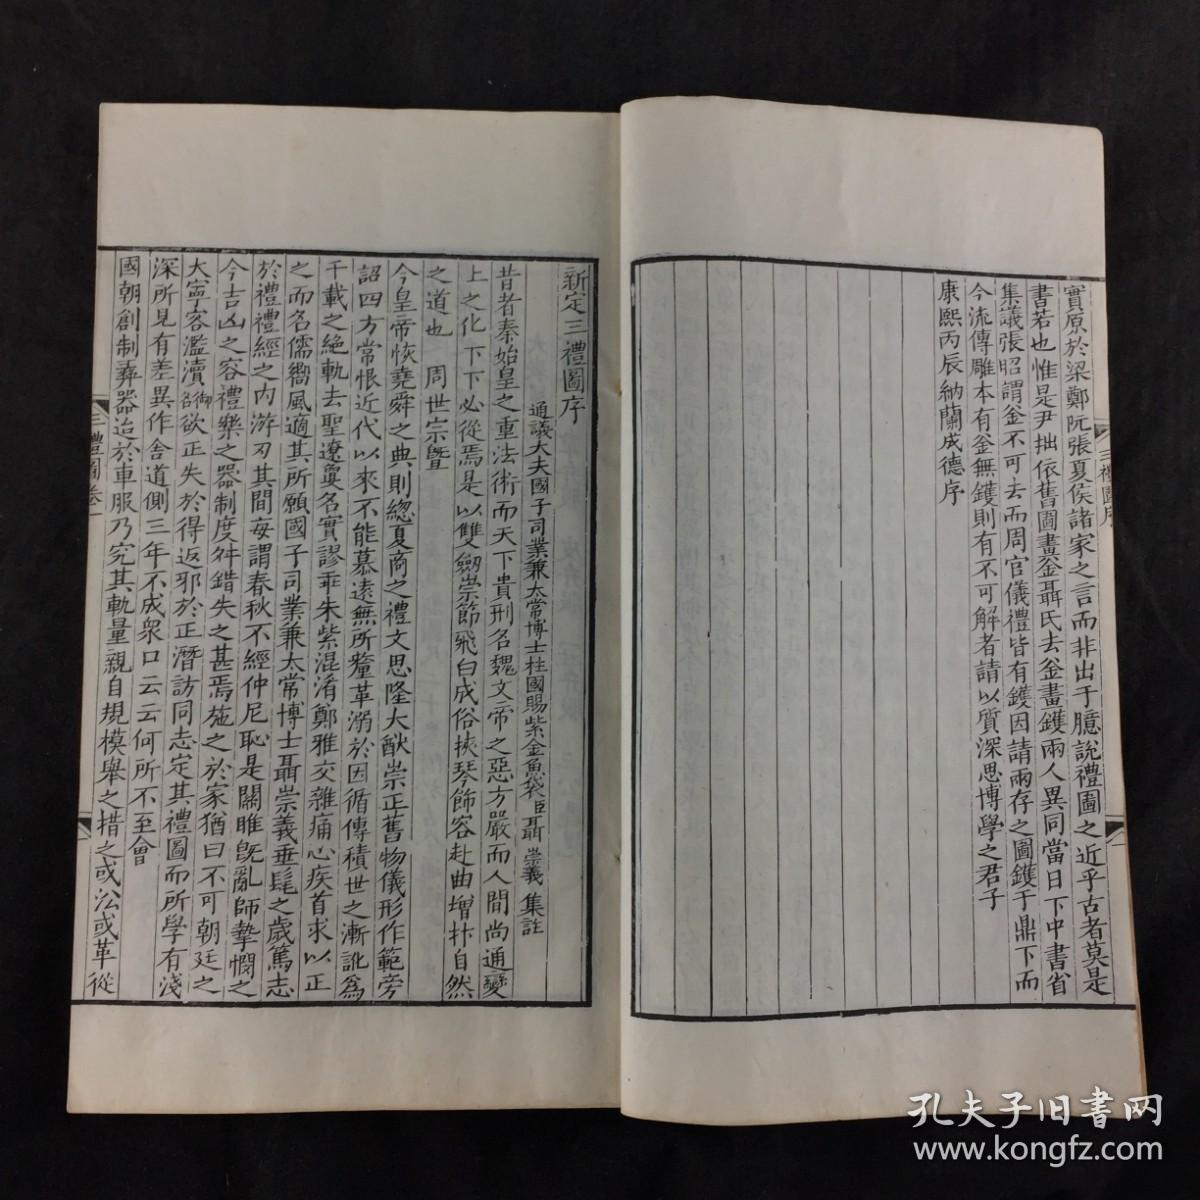 實原於梁鄭阮張夏侯諸家之言而非出于臆說禮圖之近乎古者莫是
書若也惟是尹拙依舊圖畫釜聶氏去釜畫鑊兩人異同當日下中書省
集議張昭謂釜不可去而周官儀禮皆有鑊因請兩存之圖鑊于鼎下而
今流傳雕本有釜無鑊則有不可解者請以質深思博學之君子
康熙丙辰納蘭成德序
三禮圖序
一
新定三禮圖序
通議大夫國子司業兼太常博士柱國賜紫金魚袋臣聶崇義集註
昔者秦始皇之重法術而天下貴刑名魏文帝之惡方嚴而人間尚通變
上之化下下必從焉是以雙劒崇節飛白成俗挾琴飾容赴曲增抃自然
之道也 周世宗曁
今皇帝恢堯舜之典則總夏商之禮文思隆大猷崇正舊物儀形作範旁
詔四方常恨近代以來不能慕遠無所釐革溺於因循傳積世之漸訛爲
千載之絕軌去聖遼夐名實謬乖朱紫混淆鄭雅交雜痛心疾首求以正
之而名儒嚮風適其所願國子司業兼太常博士聶崇義垂髦之歲篤志
於禮禮經之內游刃其間每謂春秋不經仲尼恥是關雎旣亂師摯憫之
今吉凶之容禮樂之器制度舛錯失之甚焉施之於家猶曰不可朝廷之
大寧容濫瀆御名欲正失於得返邪於正潛訪同志定其禮圖而所學有淺
深所見有差異作舍道側三年不成衆口云云何所不至會
國朝創制彝器迨於車服乃究其軌量親自規模舉之措之或沿或革從
三禮圖卷一
孔夫子旧書网
www.kongfz.com